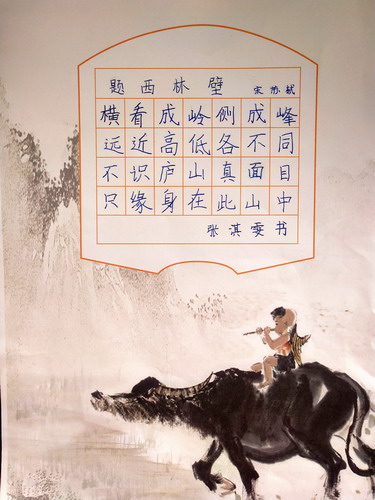 题西林壁 宋苏轼
横看成岭侧成峰
远近高低各不同
不识庐山真面目
只缘身在此山中
张淇雯书